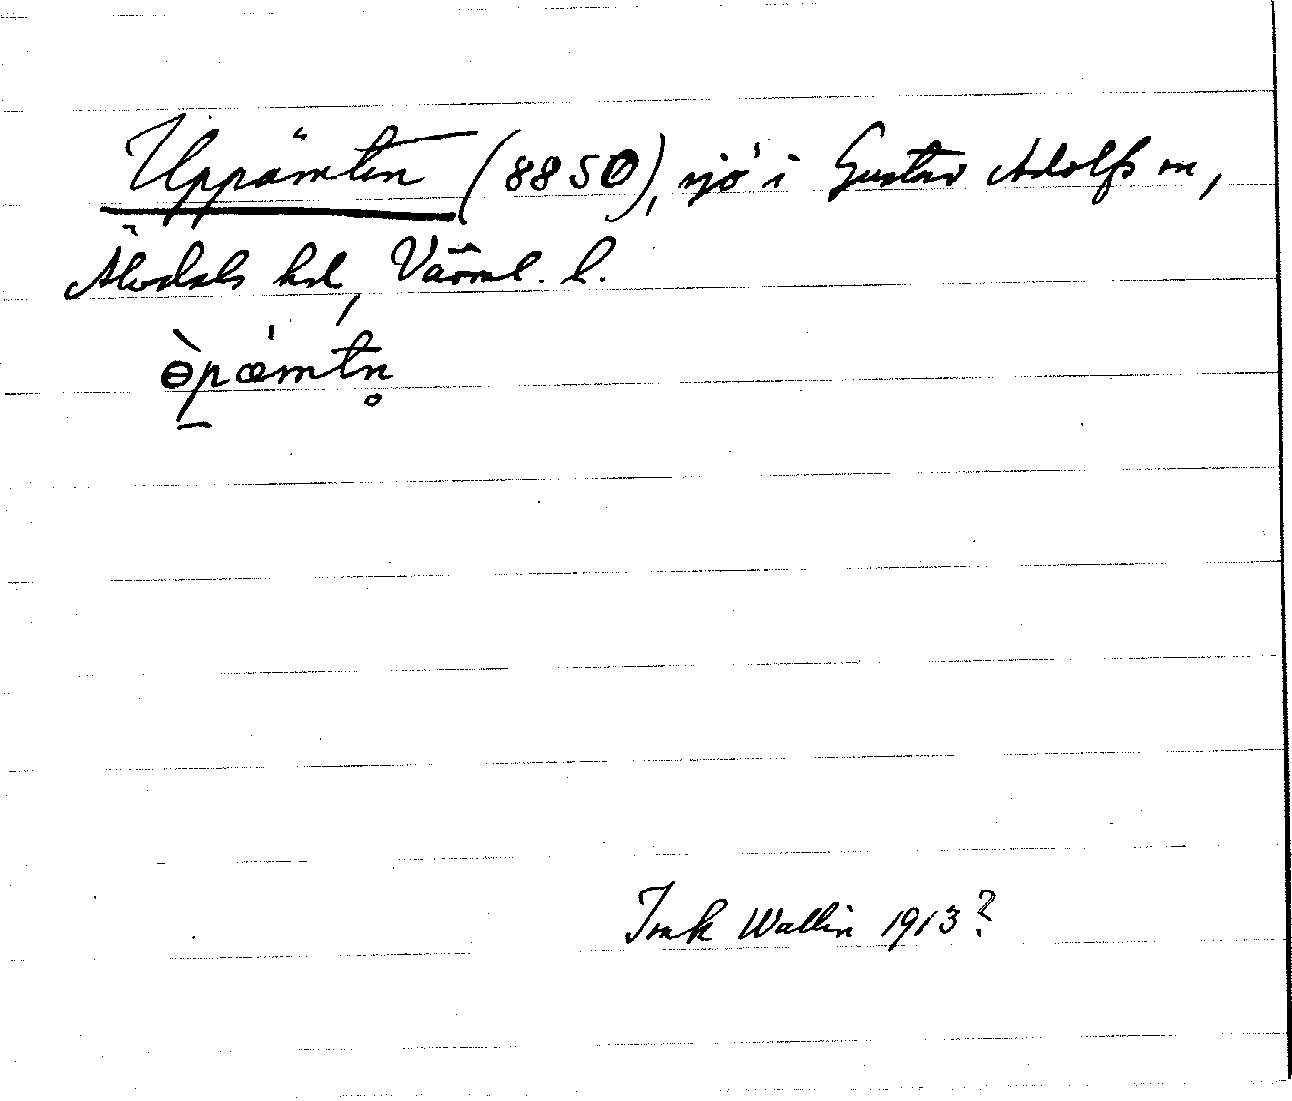 Uppämten (8850), sjö i Gustav Adolfs sn,
Älvdals hd, Värml. l.
ɵ̀p̱æmtn̥
Wallin 1913?